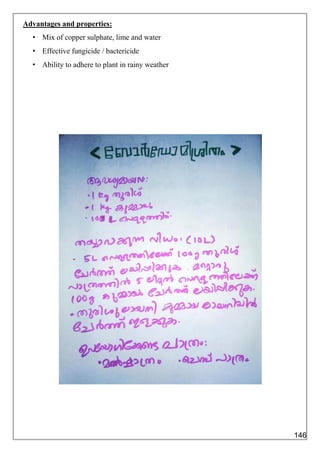 Advantages and properties:
• Mix of copper sulphate, lime and water
• Effective fungicide / bactericide
• Ability to adhere to plant in rainy weather
<ബോർഡോമിശ്രിതം>
ആവശ്യമായവ:
• 1 kg തുരിശ്
• 1 kg കുമ്മായം
• 100 L വെള്ളത്തിൽ
തയ്യാറാക്കുന്ന വിധം: (10L)
• 5L വെള്ളത്തിലേക്ക് 100g തുരിശ്
ചേർത്ത് ലയിപ്പിക്കുക. മറ്റൊരു
പാത്രത്തിൽ 5 ലിറ്റർ വെള്ളത്തിലേക്ക്
100g കുമ്മായം ചേർത്ത് ലയിപ്പിക്കുക.
• തുരിശുലായനി കുമ്മായ ലായനിയിൽ
ചേർത്ത് ഇളക്കുക.
ഉപയോഗിക്കേണ്ട പാത്രം:
• മൺപാത്രം • ചെമ്പ് പാത്രം
146